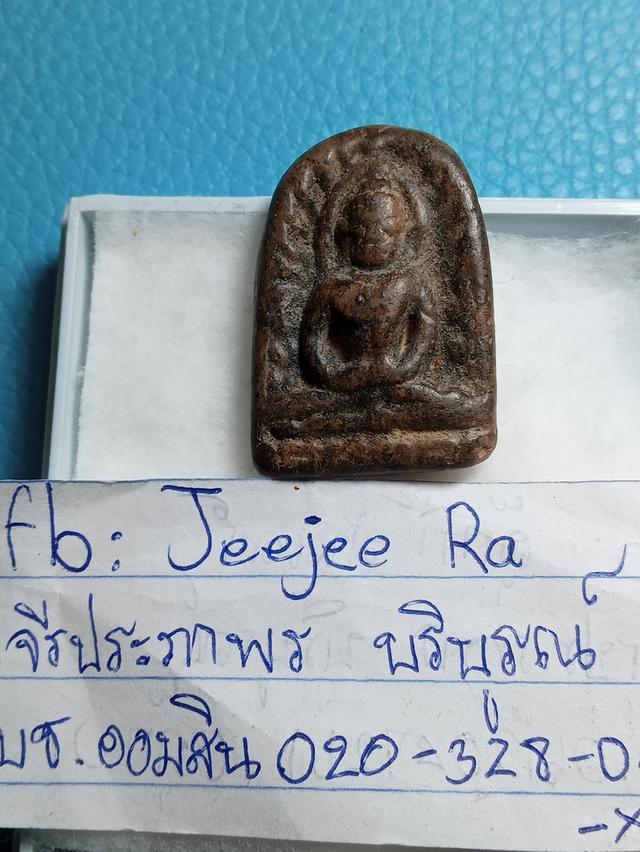 fb: Jeejee Ra
จีรประภาพร บริบูรณ์
บช. ออมสิน 020-328-0
-x